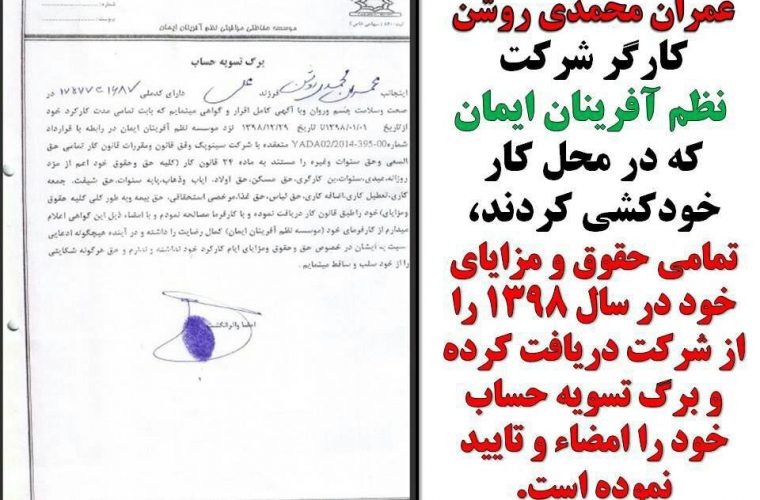 شماره:
پیوست:
موسسه حفاظتی مراقبتی نظم آفرینان ایمان
برگ تسویه حساب
اینجانب عمران محمدی روشن فرزند علی دارای کدملی در
صحت وسلامت جسم وروان وبا آگهی کامل اقرار و گواهی مینمایم که بابت تمامی مدت کارکرد خود
ازتاریخ ۱۳۹۸/۰۱/۰۱تا تاریخ ۱۳۹۸/۱۲/۲۹ نزد موسسه نظم آفرینان ایمان در رابطه با قرارداد
شماره YADA02/2014-395-00 منعقده با شرکت سینوپیک وفق قانون ومقررات قانون کار تمامی حق
السعی وحق سنوات وغیره را مستند به ماده ۲۴ قانون کار (کلیه حق وحقوق خود اعم از مزد
روزانه،عیدی،سنوات،بن کارگری،حق مسکن،حق اولاد، ایاب وذهاب،پایه سنوات،حق شیفت، جمعه
کاری،تعطیل کاری،اضافه کاری،حق لباس،حق غذا،مرخصی استحقاقی، حق بیمه وبه طور کلی کلیه حقوق
ومزایای) خود راطبق قانون کار دریافت نموده و با کارفرما مصالحه نمودم و با امضاء، ذیل این گواهی اعلام
میدارم از کارفرمای خود (موسسه نظم آفرینان ایمان) کمال رضایت را داشته و در آینده هیچگونه ادعایی
نسبت به ایشان در خصوص حق وحقوق ومزایای ایام کارکرد خود نداشته و ندارم و حق هرگونه شکایتی
را از خود سلب و ساقط مینمایم.
امضا واثرانگشت
۱
عمران محمدی روشن
کارگر شرکت
نظم آفرینان ایمان
که در محل کار
خودکشی کردند،
تمامی حقوق و مزایای
خود در سال ۱۳۹۸ را
از شرکت دریافت کرده
و برگ تسویه حساب
خود را امضاء و تایید
نموده است.